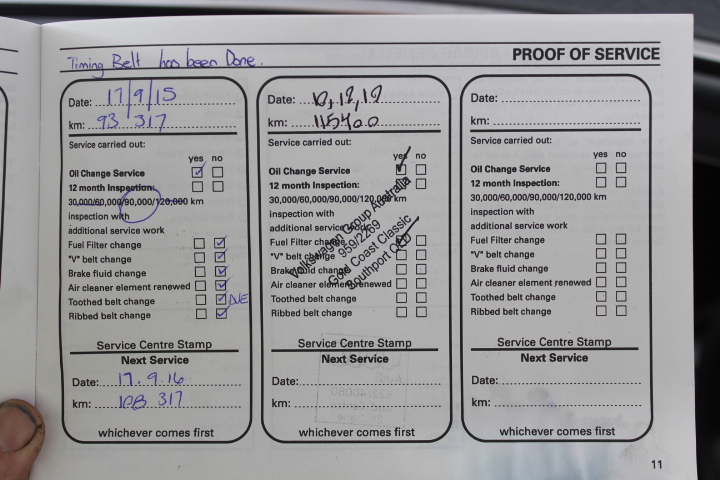 Timing Belt has been Done.
PROOF OF SERVICE
Date: 17/9/15
km: 93 317
Service carried out:
yes no
Oil Change Service
12 month Inspection:
30,000/60,000/90,000/120,000 km
inspection with
additional service work
Fuel Filter change
"V" belt change
Brake fluid change
Air cleaner element renewed
Toothed belt change
Ribbed belt change
Service Centre Stamp
Next Service
Date: 17.9.16
km: 108 317
whichever comes first
Date:
km: 115400
Service carried out:
yes no
Oil Change Service
12 month Inspection:
30,000/60,000/90,000/120,000 km
inspection with
additional service work
Fuel Filter change
"V" belt change
Brake fluid change
Air cleaner element renewed
Toothed belt change
Ribbed belt change
Volkswagen Group Australia
959/2269
Gold Coast Classic
Southport QLD
Service Centre Stamp
Next Service
Date:
km:
whichever comes first
Date:
km:
Service carried out:
yes no
Oil Change Service
12 month Inspection:
30,000/60,000/90,000/120,000 km
inspection with
additional service work
Fuel Filter change
"V" belt change
Brake fluid change
Air cleaner element renewed
Toothed belt change
Ribbed belt change
Service Centre Stamp
Next Service
Date:
km:
whichever comes first
11